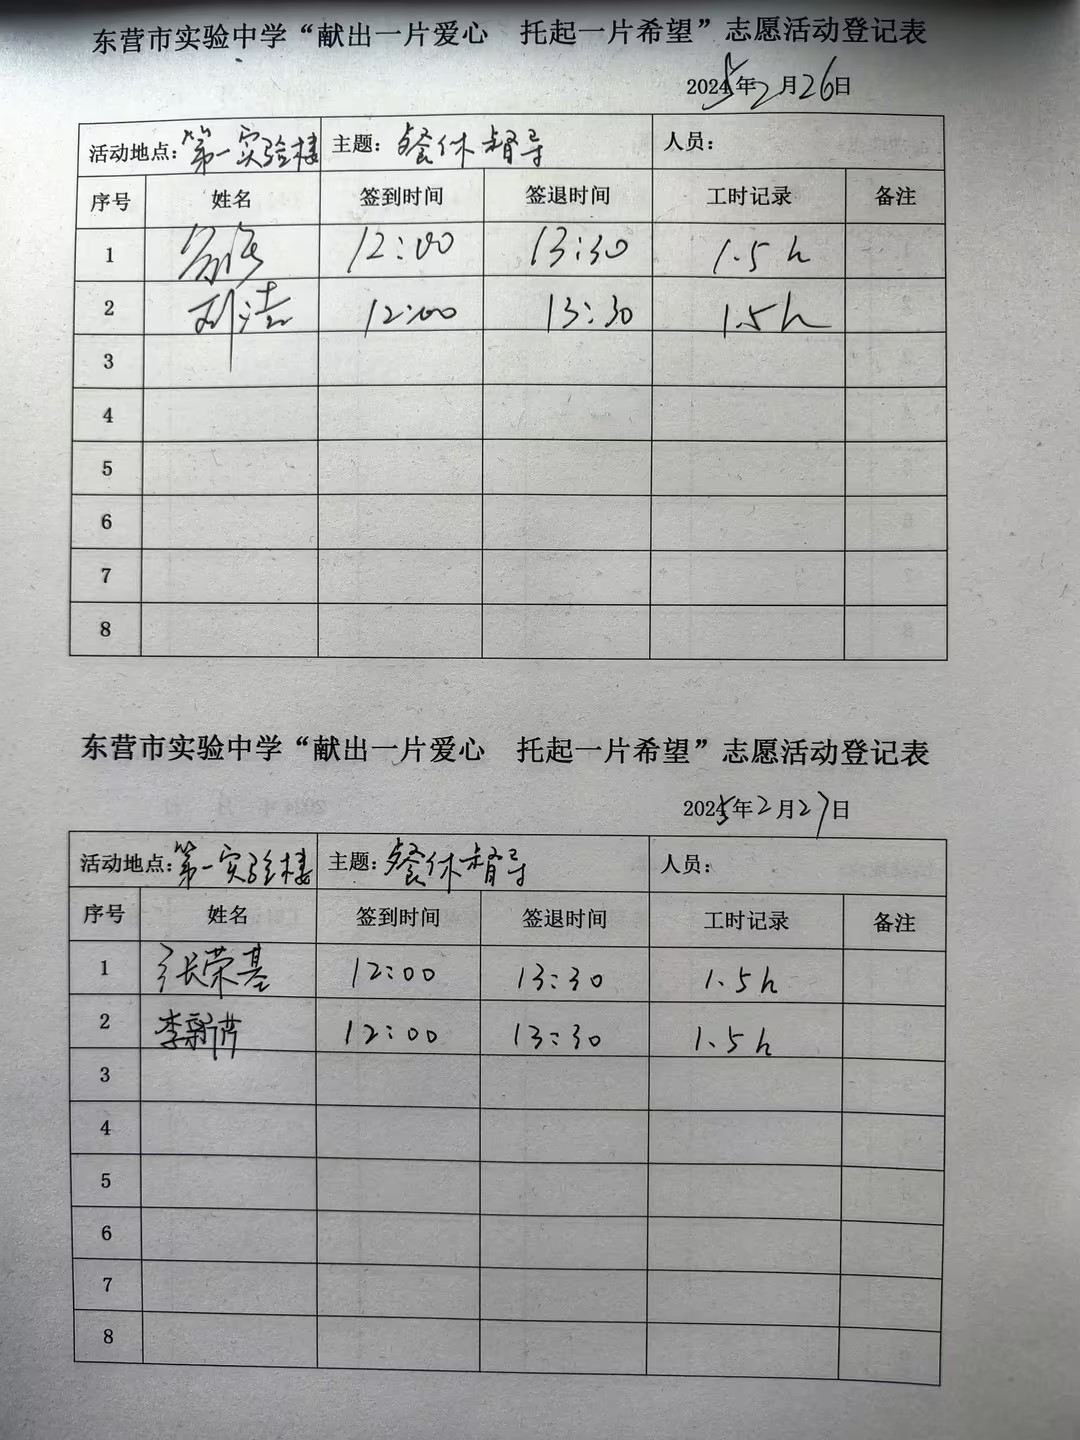 东营市实验中学“献出一片爱心 托起一片希望”志愿活动登记表
2025年2月26日
活动地点：第一实验楼 主题：餐休督导 人员：
序号 姓名 签到时间 签退时间 工时记录 备注
1 12:00 13:30 1.5h
2 刘洁 12:00 13:30 1.5h
3
4
5
6
7
8
东营市实验中学“献出一片爱心 托起一片希望”志愿活动登记表
2025年2月27日
活动地点：第一实验楼 主题：餐休督导 人员：
序号 姓名 签到时间 签退时间 工时记录 备注
1 张荣基 12:00 13:30 1.5h
2 李 12:00 13:30 1.5h
3
4
5
6
7
8